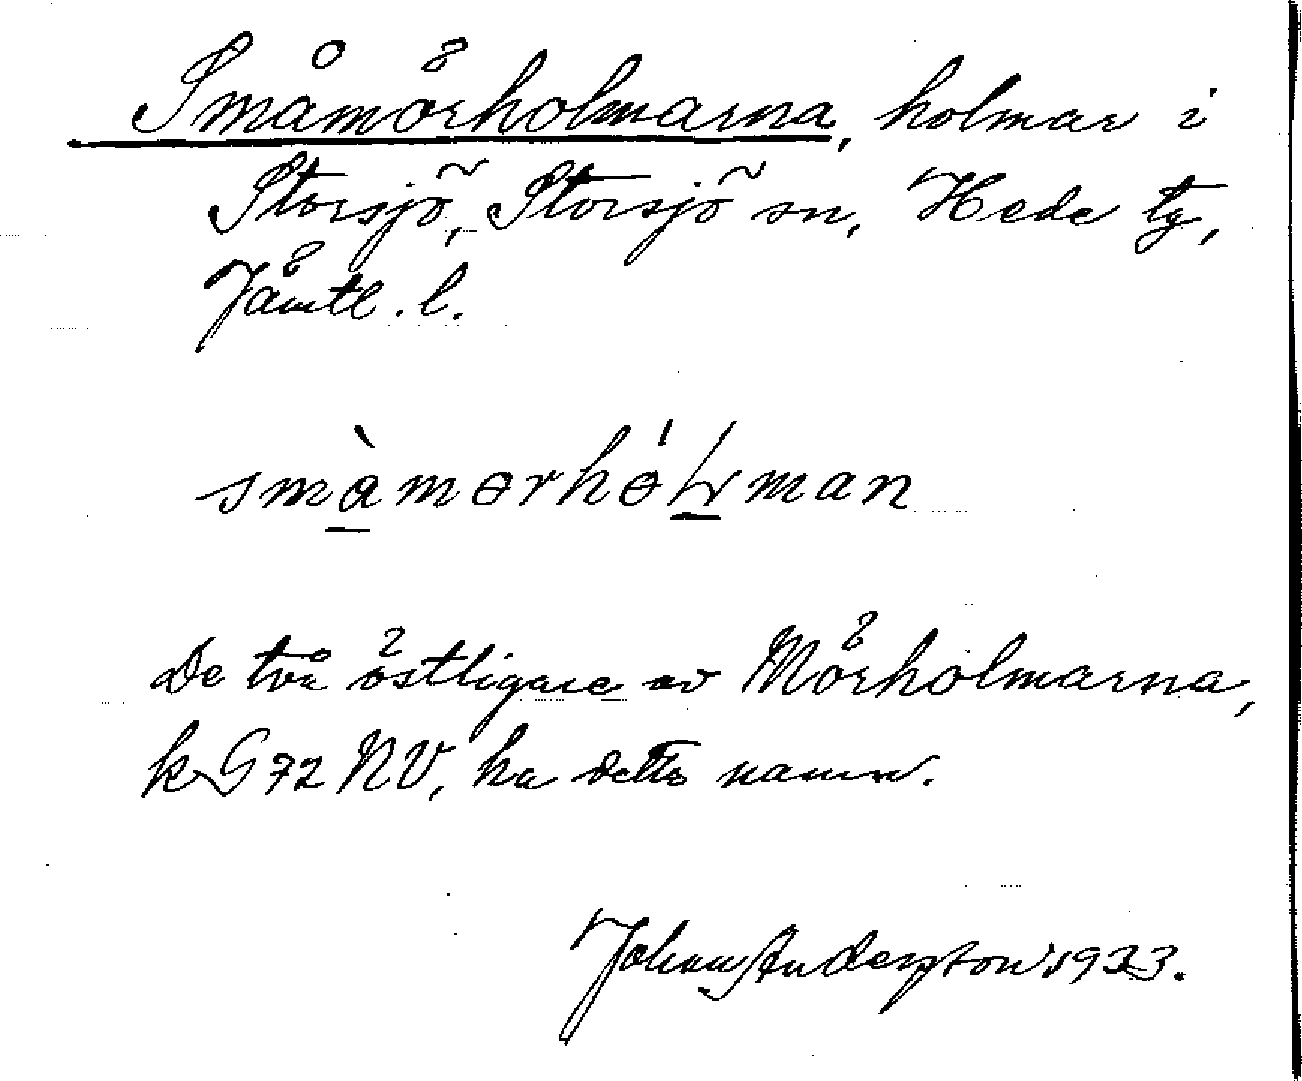 Småmörholmarna, holmar i
Storsjö, Storsjö sn, Hede tg,
Jämtl. l.
smàmɵrhɵ́lman
De två östligare av Mörholmarna,
k G 72 NV, ha detta namn.
Johan Andersson 1923.